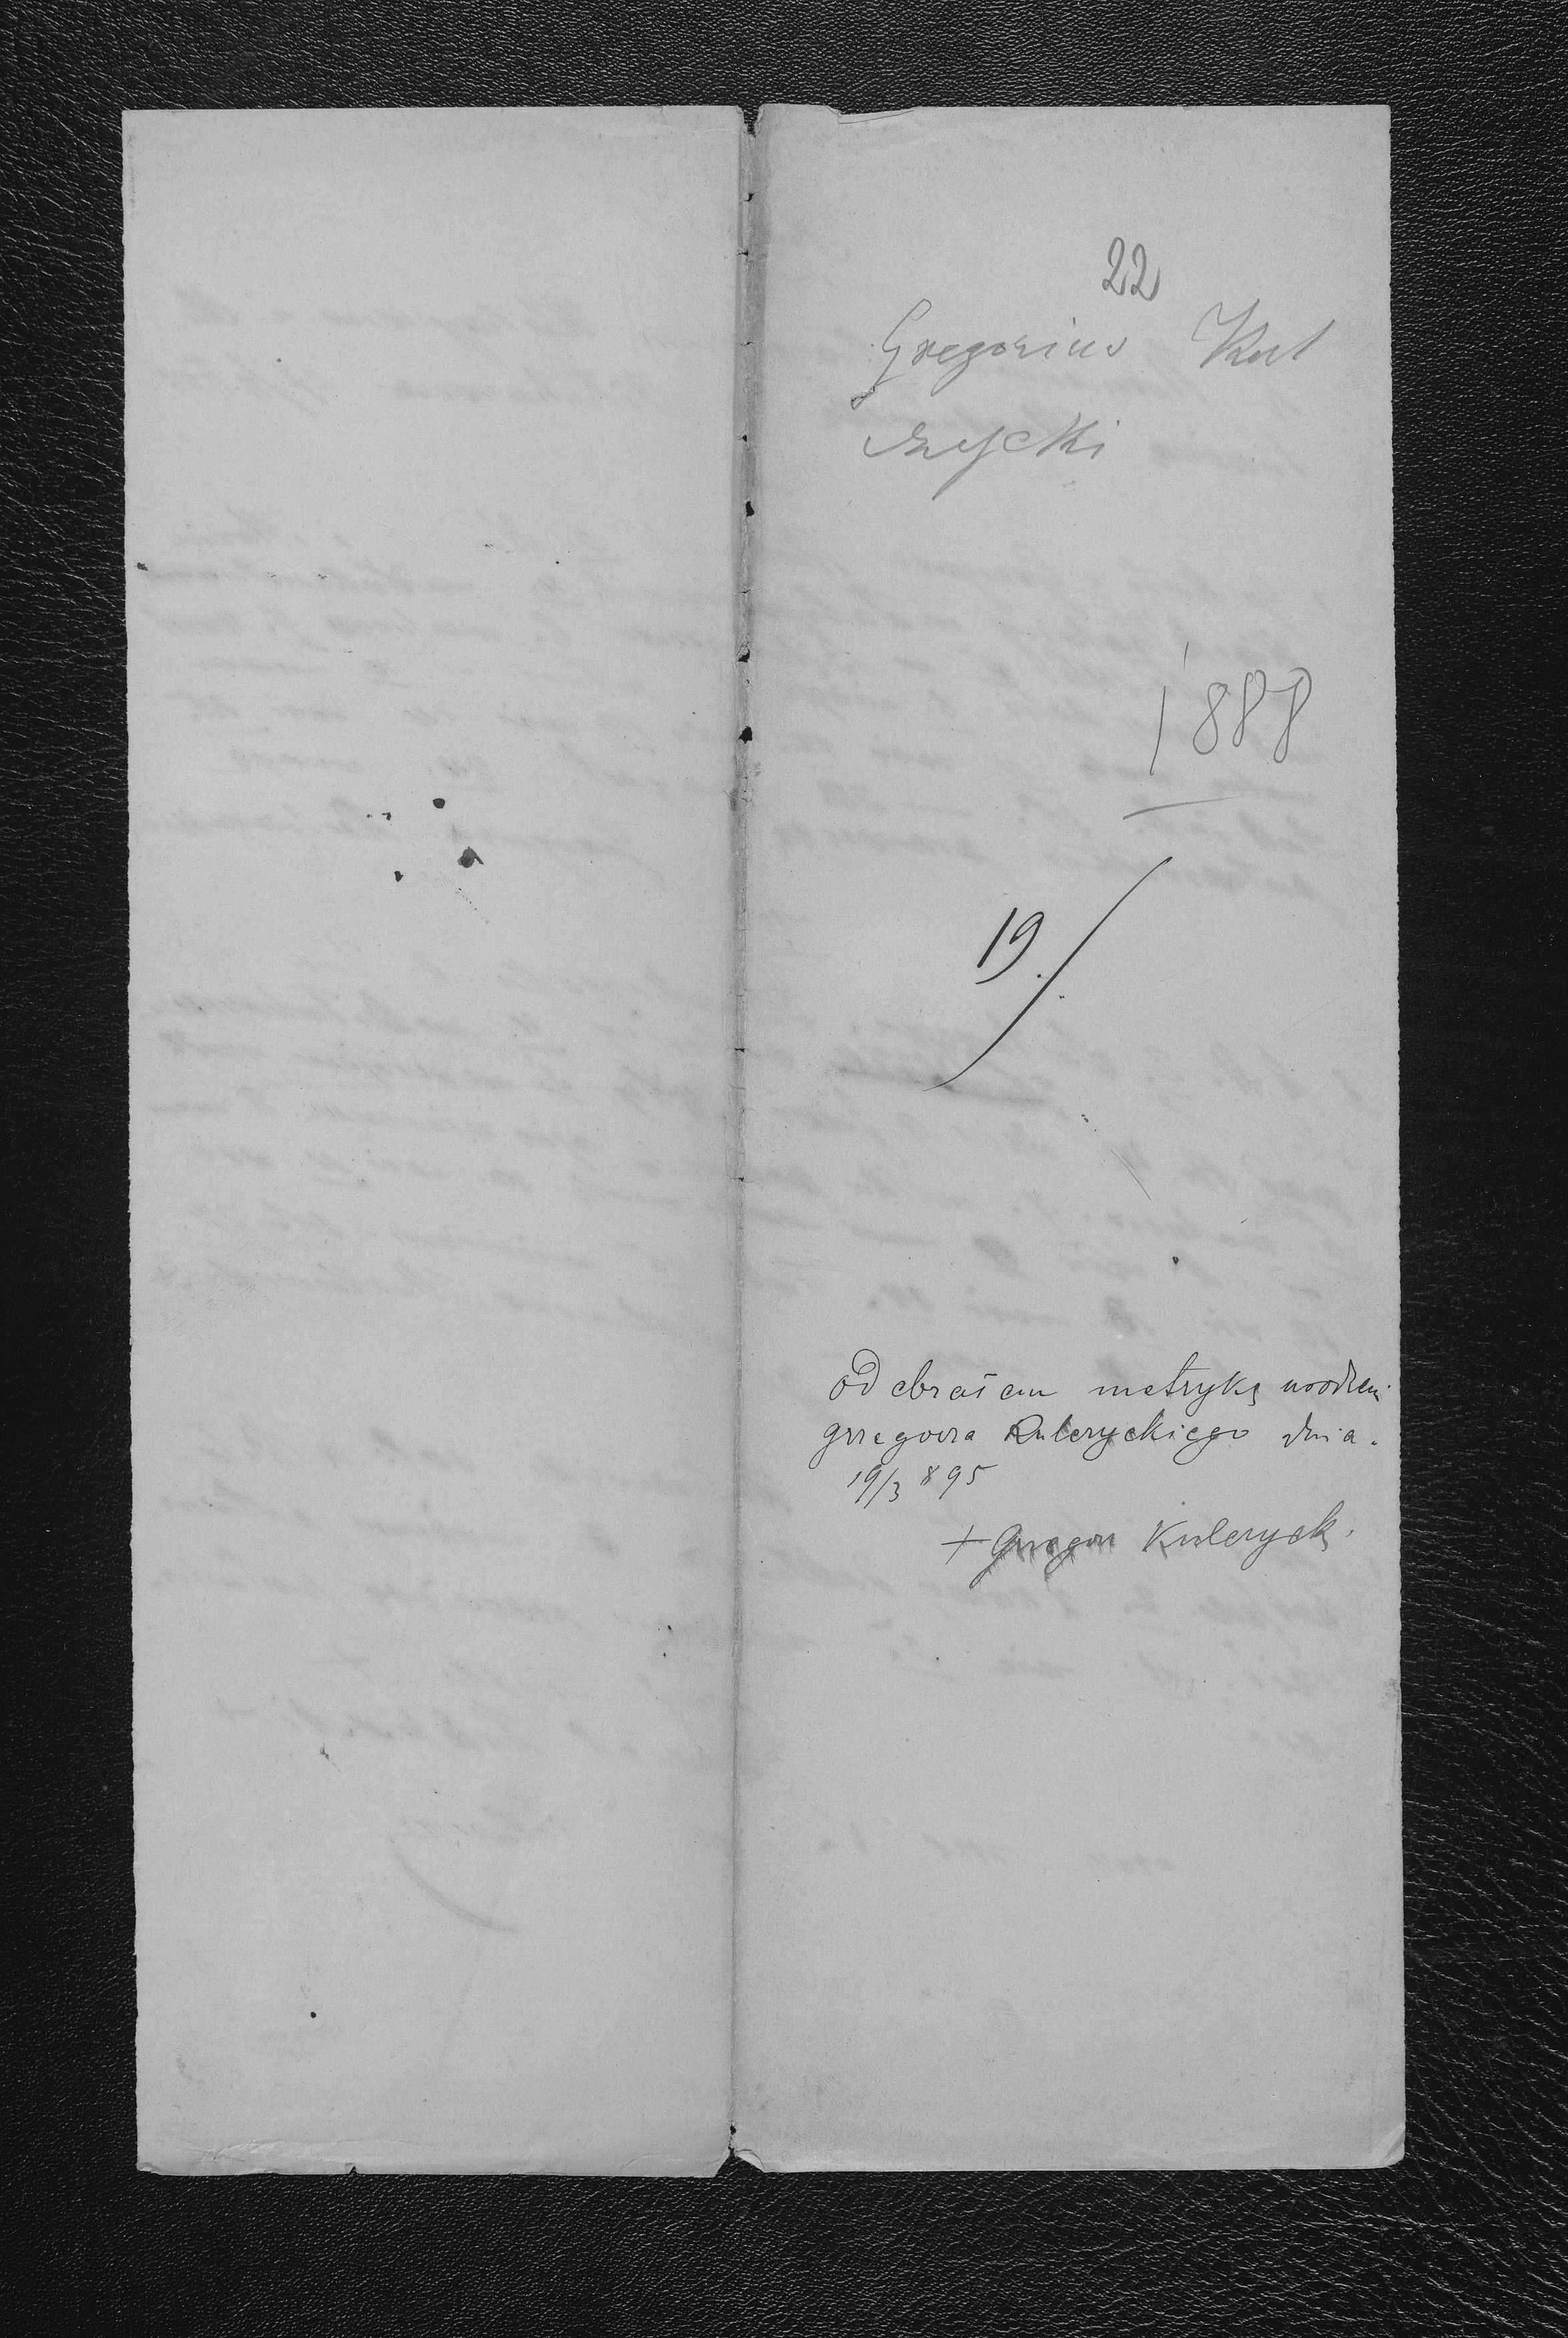 22
Gregorius Kul
czycki
1888
19./.
Odebrałem metrykę urodzeni
Grzegorza Kulczyckiego dnia.
19/3 895
+ Grzegorz Kulczycki